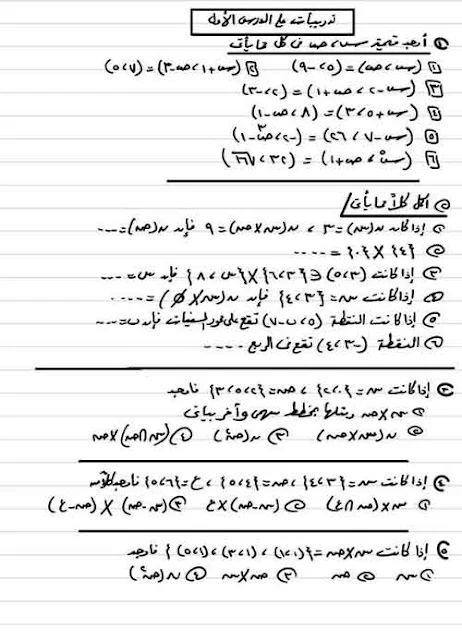 تدريبات على الدرس الأول
① أوجد قيمة س، ص فى كل مما يأتى
١ (س، ص) = (٥، -٩) ٢ (س+١، ص-٣) = (٧، ٥)
٣ (س-٢، ص+١) = (٢، -٣)
٤ (س+٥، ٣) = (٨، ص-١)
٥ (س-٧، ٢٦) = (-٢، ص٣-١)
٦ (س٥، ص+١) = (٣٢، √٣٦)
② أكمل كلاً مما يأتى
١ إذا كان ن(س) = ٣، ن(س×ص) = ٩ فإن ن(ص) = ...
٢ {٤} × {٠} = ....
٣ إذا كانت (٥، ٣) ∈ {٣، ٦} × {س، ٨} فإن س = ...
٤ إذا كانت س = {٣، ٤} فإن ن(س × ∅) = ....
٥ إذا كانت النقطة (٥، ب-٧) تقع على محور السينات فإن ب = ...
٦ النقطة (-٣، ٤) تقع فى الربع ....
③ إذا كانت س = {٠، ٢}، ص = {٢، ٥، ٣} فأوجد
١ س×ص ومثلها بمخطط سهمى وآخر بيانى
٢ ن(س×ص) ٣ ن(ص٢) ٤ (س∩ص)×ص
④ إذا كانت س = {٣، ٤}، ص = {٤، ٥}، ع = {٦، ٥} فأوجد كلاً من
١ س×(ص∩ع) ٢ (س-ص)×ع ٣ (س-ص) × (ص-ع)
⑤ إذا كانت س×ص = {(١، ١)، (١، ٣)، (١، ٥)} فأوجد
١ س ٢ ص ٣ ص×س ٤ ن(ص٢)